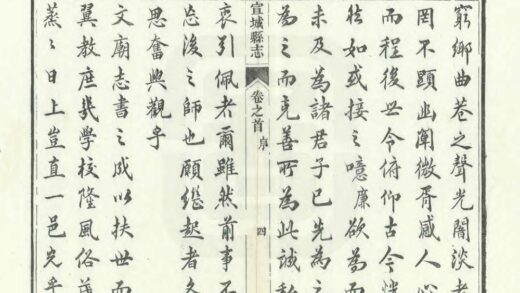 窮鄉曲巷之聲光闇淡者
罔不顯幽闡微胥感人心
而程後世令俯仰古今
如或接之噫廉欲為而
未及為諸君子已先為之
為之而克善所為此誠私
宣城縣志
卷之首 序
四
衷引佩者爾雖然前事不
忘後之師也顧繼起者各
思奮興觀乎
文廟志書之成以扶世而
翼教庶幾學校隆風俗茂
蒸〻日上豈直一邑光乎